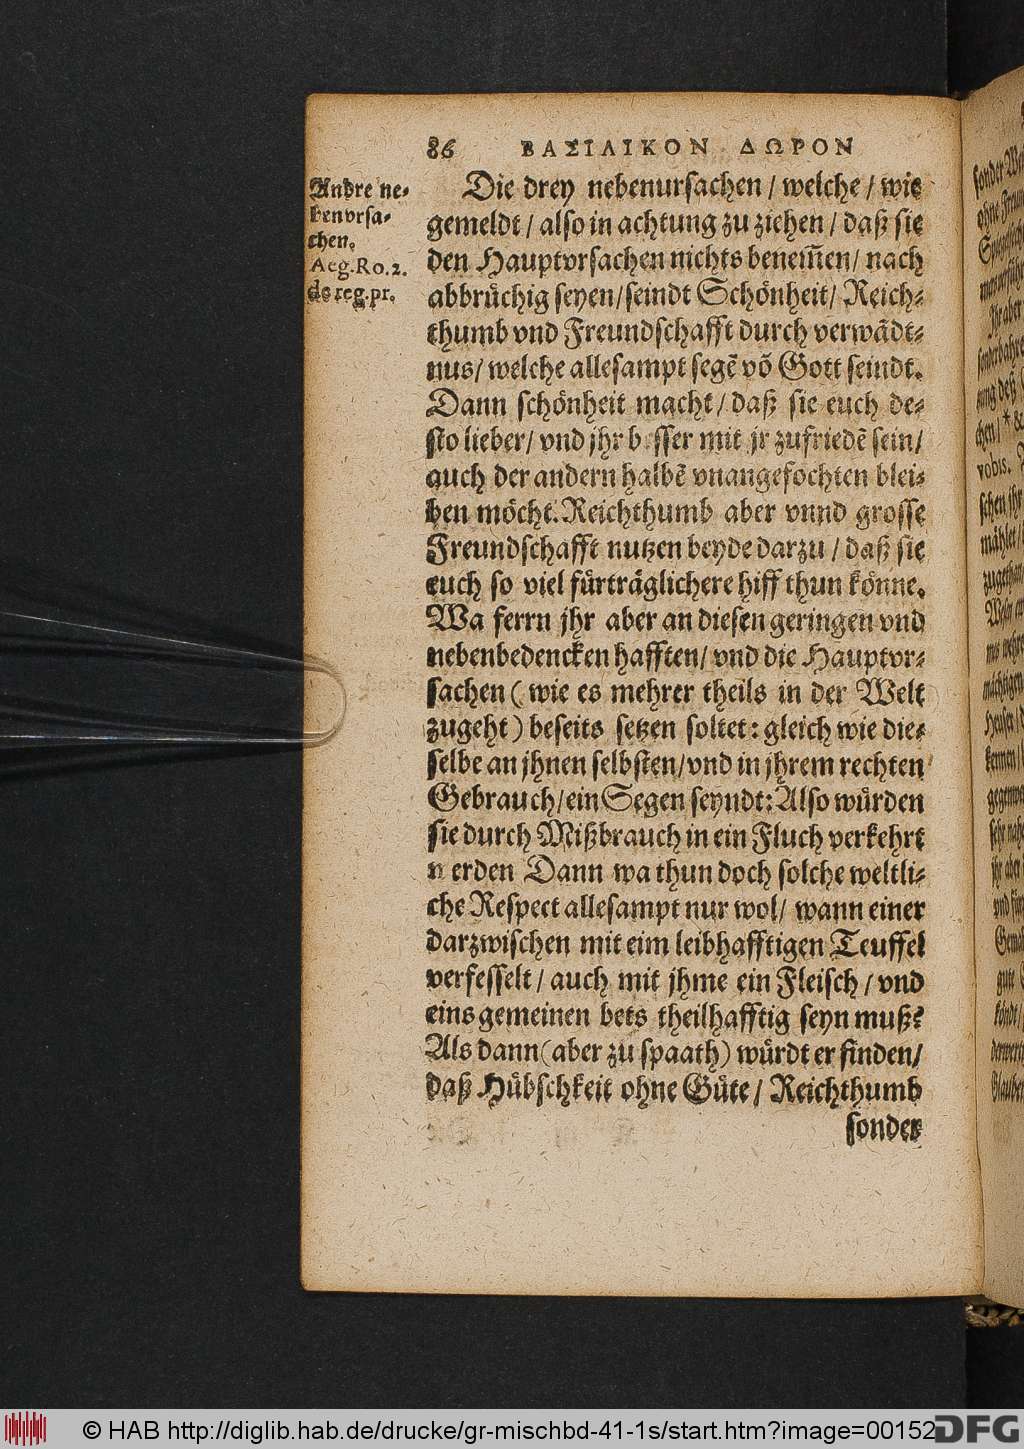 86 ΒΑΣΙΛΙΚΟΝ ΔΩΡΟΝ
Andre ne-
benvrsa-
chen.
Aeg. Ro. 2.
de reg. pr.
Die drey nebenursachen / welche / wie
gemeldt / also in achtung zu ziehen / daß sie
den Hauptvrsachen nichts benem̃en / nach
abbrüchig seyen / seindt Schönheit / Reich-
thumb vnd Freundschafft durch verwãdt-
nus / welche allesampt segẽ võ Gott seindt.
Dann schönheit macht / daß sie euch de-
sto lieber / vnd jhr b sser mit jr zufriedẽ sein /
auch der andern halbẽ vnangefochten blei-
ben möcht. Reichthumb aber vnnd grosse
Freundschafft nutzen beyde darzu / daß sie
euch so viel fürträglichere hiff thun könne.
Wa ferrn jhr aber an diesen geringen vnd
nebenbedencken hafften / vnd die Hauptvr-
sachen ( wie es mehrer theils in der Welt
zugeht ) beseits setzen soltet : gleich wie die-
selbe an jhnen selbsten / vnd in jhrem rechten
Gebrauch / ein Segen seyndt : Also würden
sie durch Mißbrauch in ein Fluch verkehrt
erden Dann wa thun doch solche weltli-
che Respect allesampt nur wol / wann einer
darzwischen mit eim leibhafftigen Teuffel
verfesselt / auch mit jhme ein Fleisch / vnd
eins gemeinen bets theilhafftig seyn muß?
Als dann ( aber zu spaath ) würdt er finden /
daß Hübschkeit ohne Güte / Reichthumb
sonder
sonder
ohne
vobis.
© HAB http://diglib.hab.de/drucke/gr-mischbd-41-1s/start.htm?image=00152
DFG